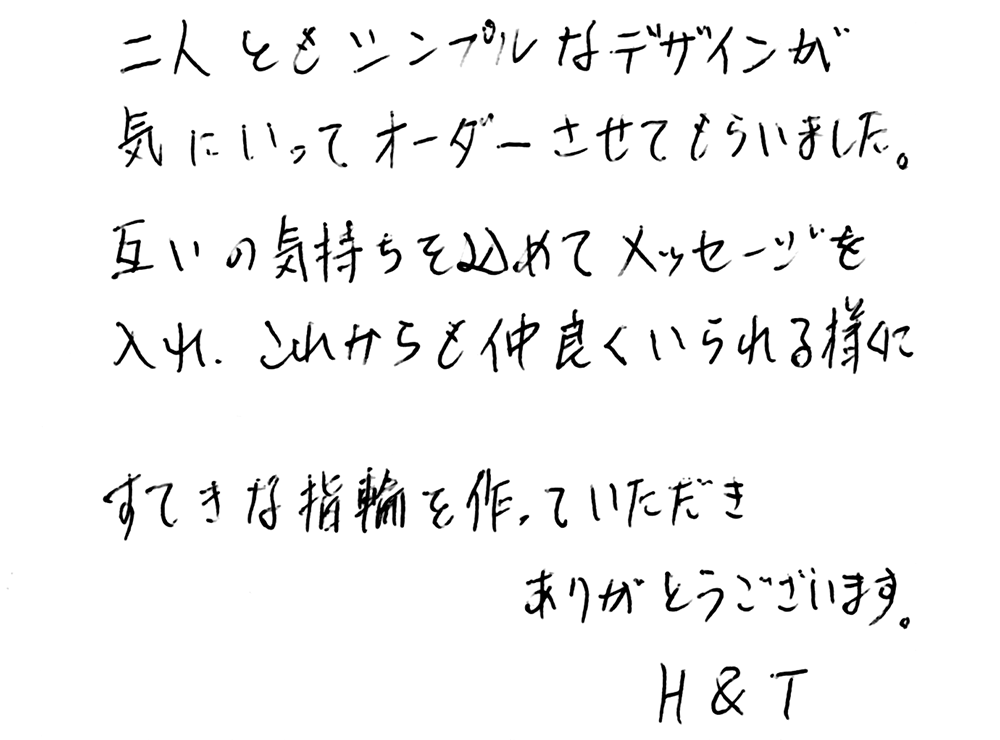 二人ともシンプルなデザインが
気にいってオーダーさせてもらいました。
互いの気持ちを込めてメッセージを
入れ、これからも仲良くいられる様に
すてきな指輪を作っていただき
ありがとうございます。
H & T